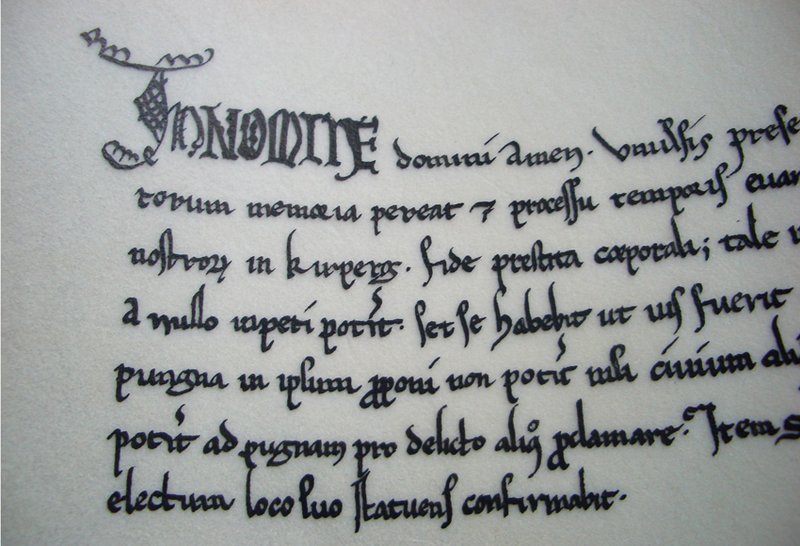 IN NOMINE domini amen. Vniũsis prese
torum memoria pereat ⁊ processu temporis euan
nostroꝝ in kirperg. fide prestita corporali; tale
A nullo inpeti potit̃. set se habebit ut uis fuerit
pungna in ipsum ꝓponi non potit̃ nisi ciuium ali
potit̃ ad pugnam pro delicto aliq̊ ꝓclamare. Item s
electum loco suo statuens confirmabit.